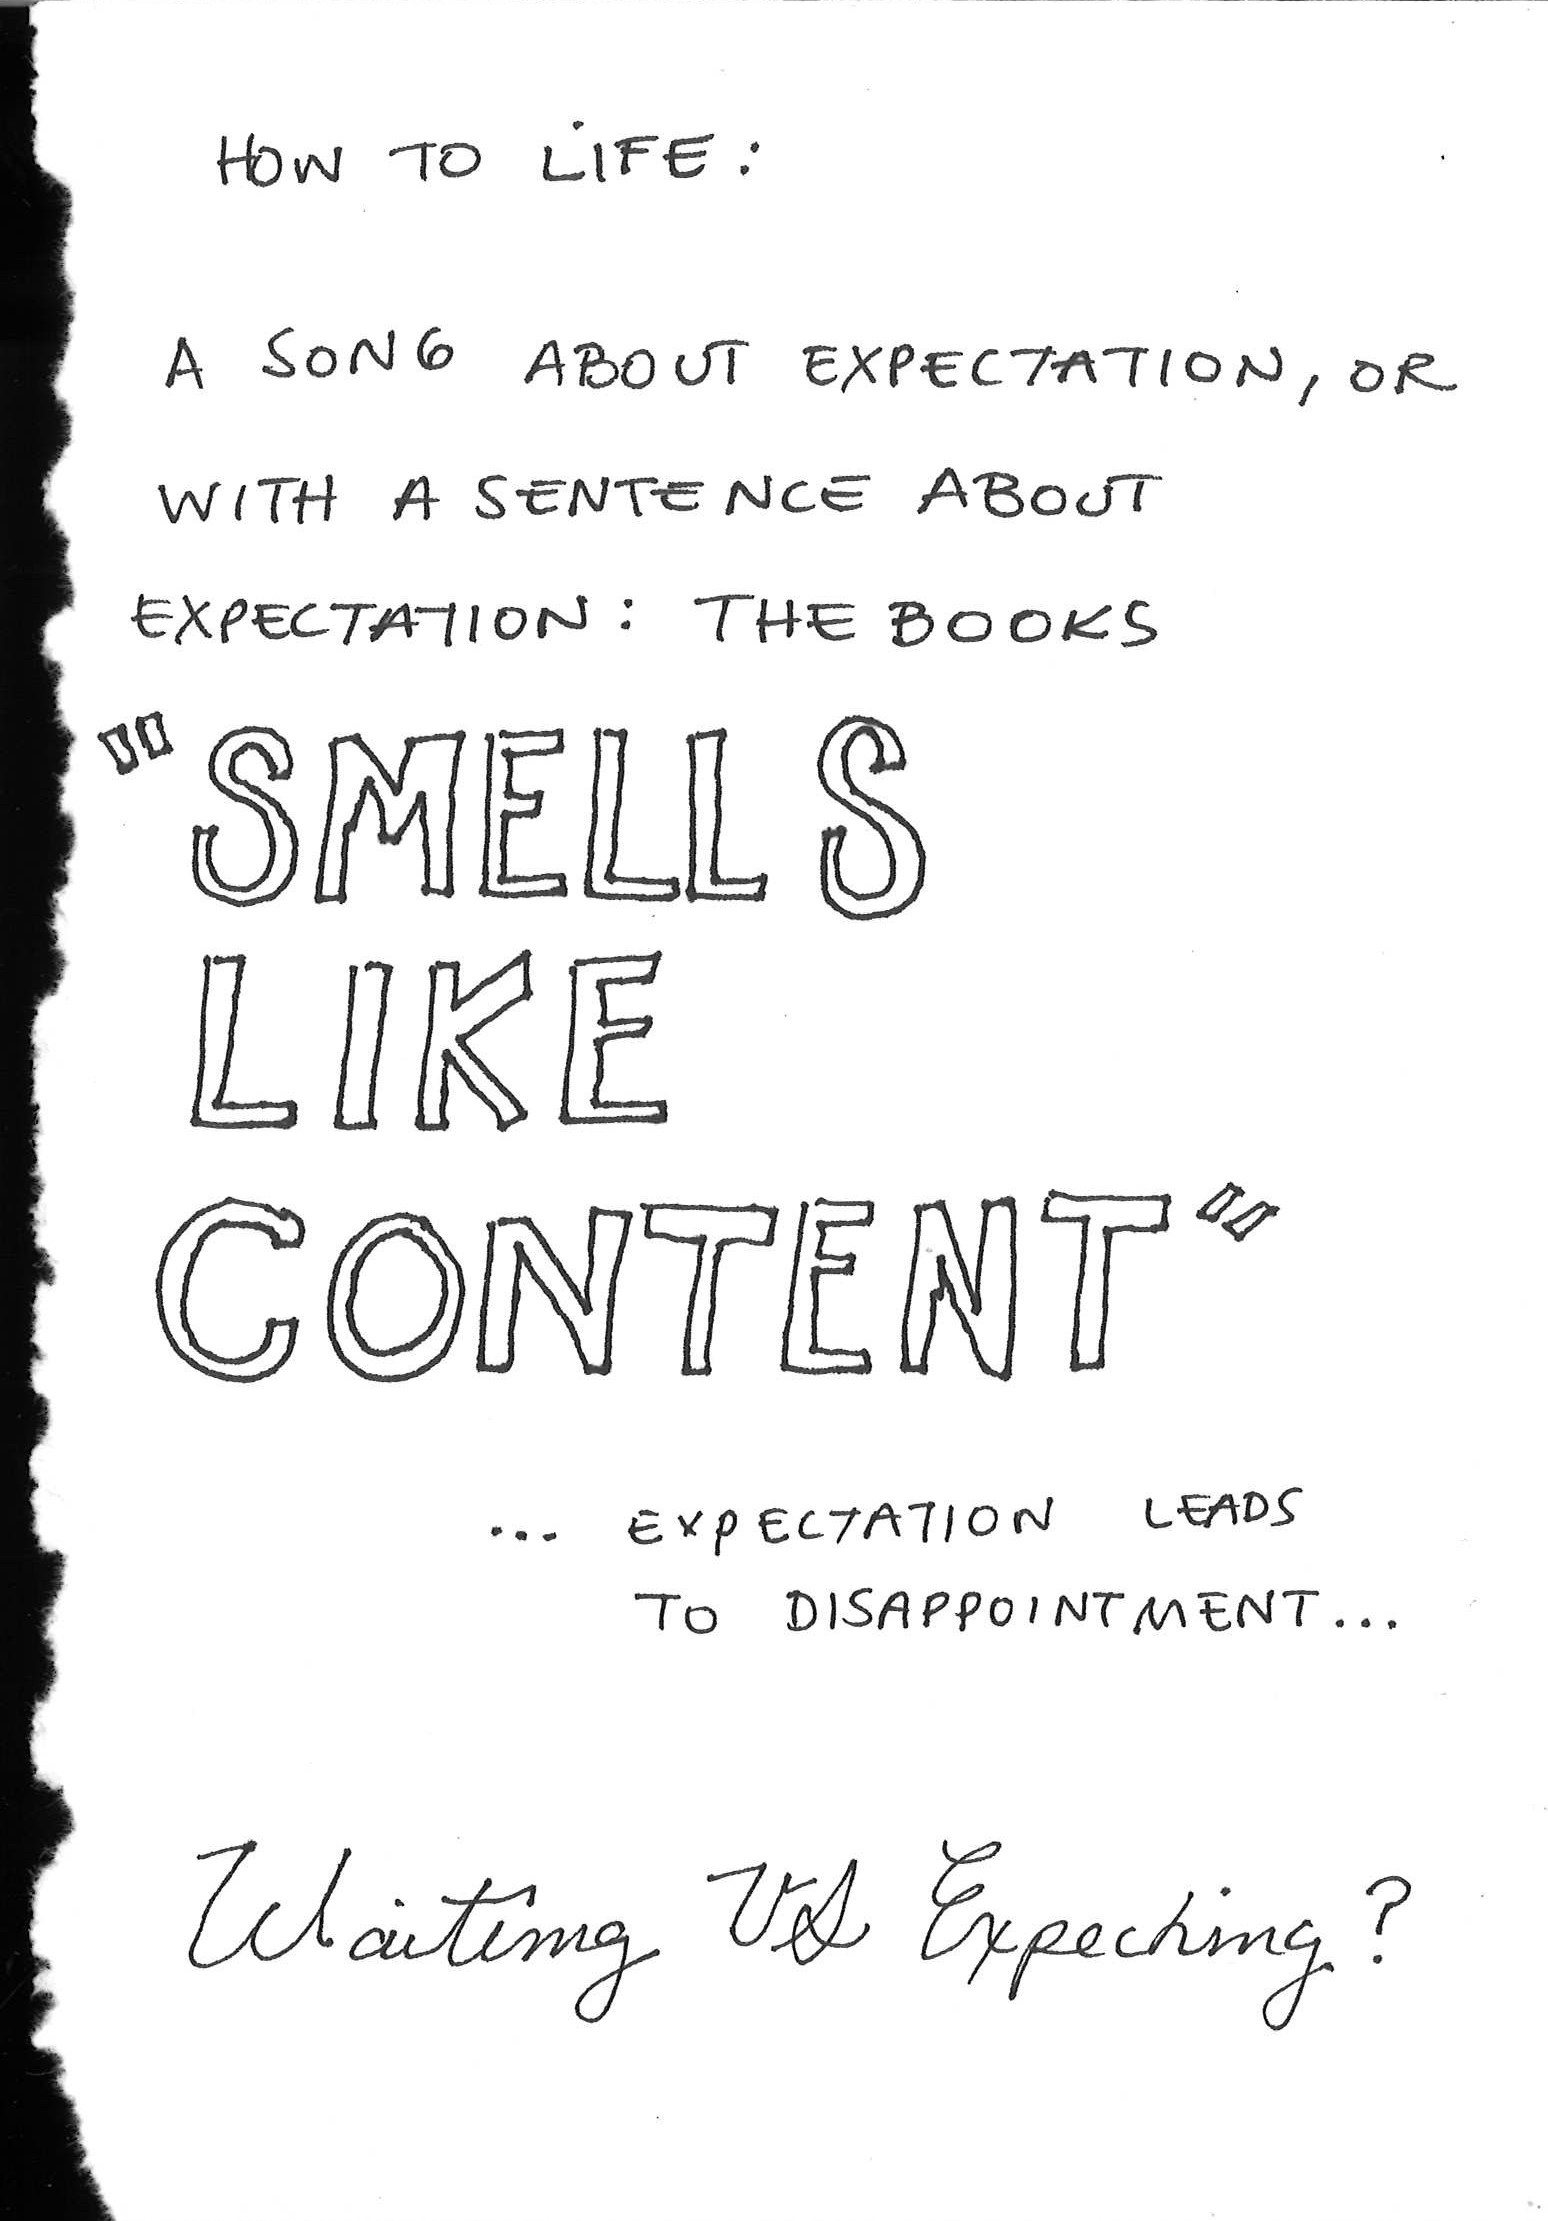 HOW TO LIFE:
A SONG ABOUT EXPECTATION, OR
WITH A SENTENCE ABOUT
EXPECTATION: THE BOOKS
"SMELLS
LIKE
CONTENT"
... EXPECTATION LEADS
TO DISAPPOINTMENT...
Waiting VS Expecting?